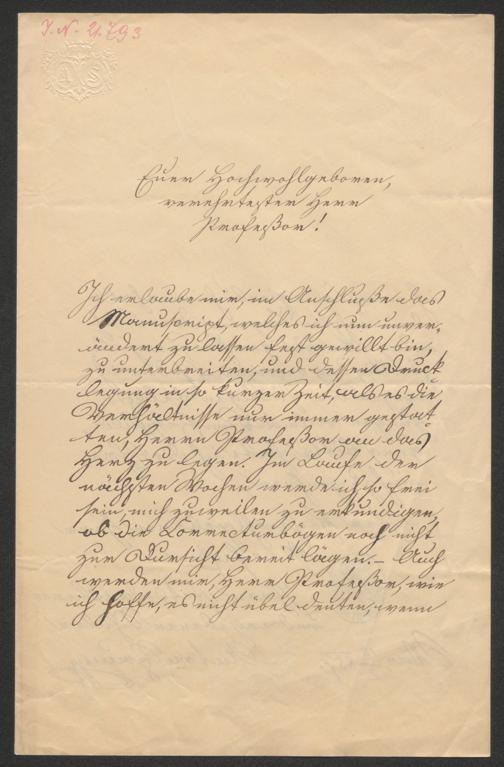 J. N. 21.793
AS
Euer Hochwohlgeboren,
verehrtester Herr
Professor!
Ich erlaube mir, im Anschluße das
Manuscript, welches ich nun unver-
ändert zu lassen fest gewillt bin,
zu unterbreiten, und dessen Druck
legung in so kurzer Zeit, als es die
Verhältnisse nur immer gestat
ten, Herrn Professor an das
Herz zu legen. Im Laufe der
nächsten Wochen werde ich so frei
sein, mich zuweilen zu erkundigen,
ob die Correcturbögen noch nicht
zur Dursicht bereit lägen. – Auch
werden mir, Herr Professor, wie
ich hoffe, es nicht übel deuten, wenn